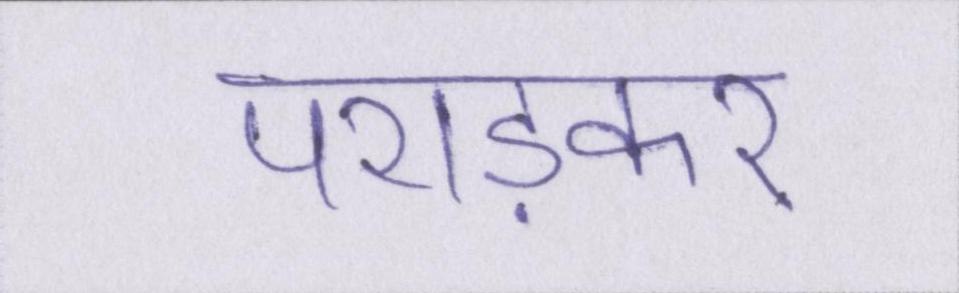 पराड़कर